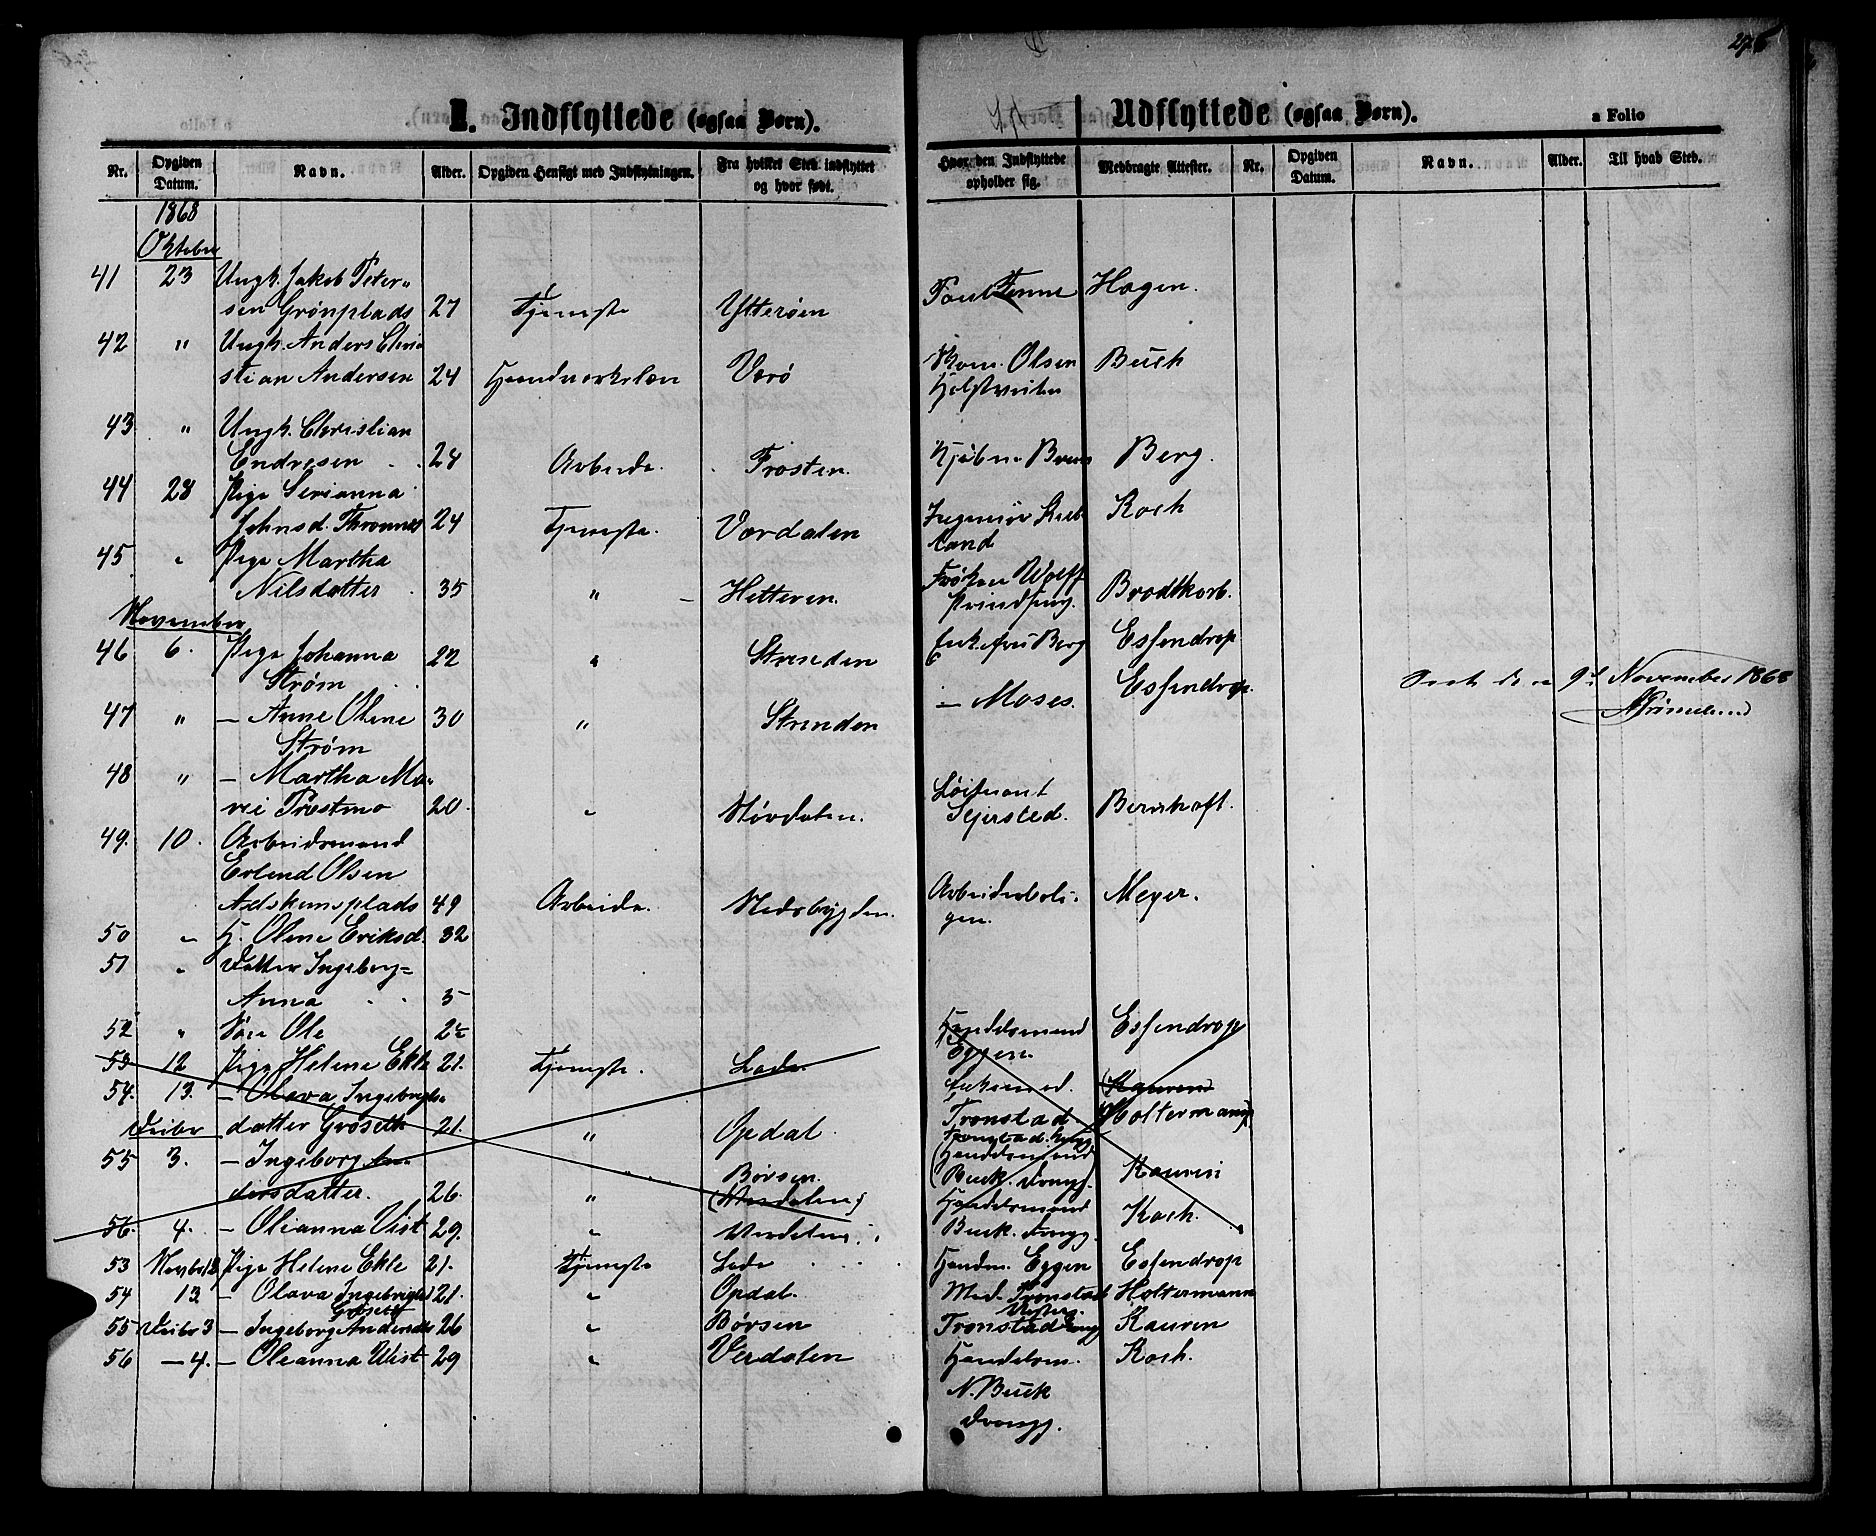 275
I. Indflyttede (ogsaa Børn).
Udflyttede (ogsaa Børn).
a Folio
Nr. Opgiven Datum. Navn. Alder. Opgiven Hensigt med Indflytningen. Fra hvilket Sted indflyttet og hvor født. Hvor den Indflyttede opholder sig. Medbragte Attester. Nr. Opgiven Datum. Navn. Alder. Til hvad Sted.
1868
Oktober
41 23 Ungk. Jakob Peter-
sen Grønplads 27 Tjeneste Ytterøen Hagen.
42 " Ungk. Anders Chri-
stian Andersen 24 Værø Olsen Buch
43 " Ungk. Christian
Endresen 24 Arbeide. Frosten. Berg.
44 28 Pige Serianna
Johnsd. 24 Tjeneste. Værdalen Ingeniør Koch
land
45 " Pige Martha
Nilsdatter 35 " Hitteren. Frøken Wolff Brodtkorb.
November
46 6. Pige Johanna
Strøm 22 " Strinden Enkefru Berg Essendrop
47 " — Anne Oline
Strøm 30 " Strinden — Moses. Essendrop. 9de November 1868
48 " — Martha Ma-
rei Præstmo 20. " Størdalen. Løitnant Sejersted. Bernhoft.
49. 10. Arbeidsmand
Erlend Olsen
49 Arbeide. Stadsbygden. Arbeiderboli-
gen. Meyer.
50 " H. Oline Eriksd. 32
51 " Datter Ingeborg-
Anna 5
52 " Søn Ole 2½
53 12 Pige Helene Ekle 21. Tjeneste. Lade. Handelsmand Eggen. Essendrop
54. 13. — Olava Ingebrigts-
Decbr datter Grøseth 21. " Opdal. Tronstad. (Kauren) Holtermann
55 3. — Ingeborg An-
dersdatter. 26. " Børsen. (Værdalen) (Handelsmand Buck. Drongg.) Kauren
56. 4. — Olianna Vist 29. " Værdalen. Handelsmand Buck. Drongg. Koch.
53 Novbr 12 Pige Helene Ekle 21. Tjeneste Lade Handm. Eggen Essendrop
54 13 — Olava Ingebrigtsd Grøseth 21. " Opdal. Mad. Tronstad Holtermann
55 Decbr 3 — Ingeborg Andersdr 26 " Børsen Tronstad Kauren
56 — 4. — Olianna Wist 29 " Værdalen Handelsm. Koch.
N. Buck
Drongg.